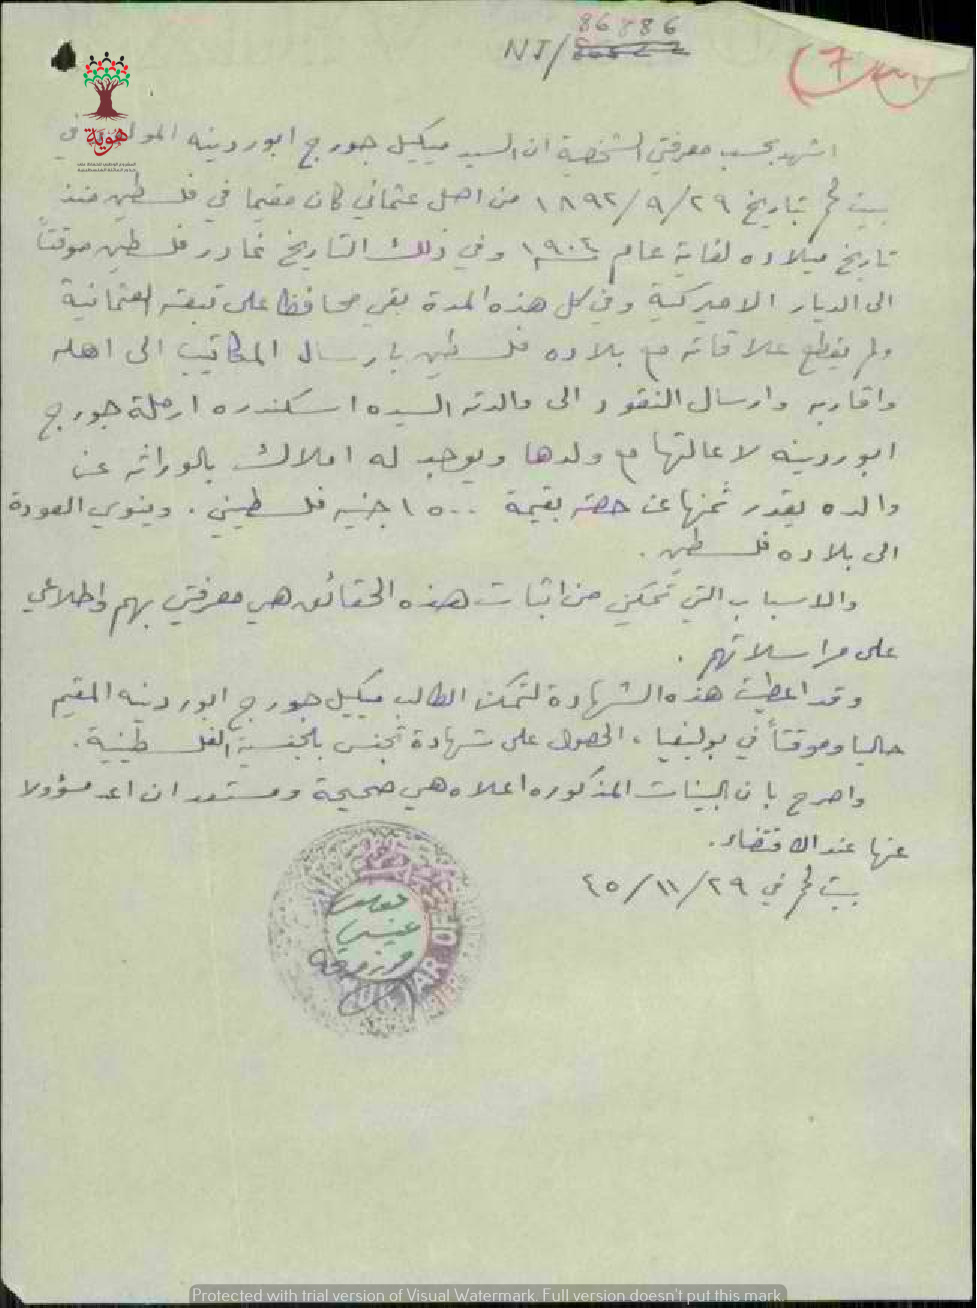 86886
NJ/
7
هوية
اشهد بحسب معرفتي الشخصية ان السيد ميكيل جورج ابوردينه المولود في
بيت لحم بتاريخ ٢٩/٩/١٨٩٢ من اصل عثماني كان مقيما في فلسطين منذ
تاريخ ميلاده لغاية عام وفي ذلك التاريخ غادر فلسطين موقتاً
الى الديار الاميركية وفي كل هذه المدة بقي محافظا على تبعته العثمانية
ولم يقطع علاقاته مع بلاده فلسطين بارسال المكاتيب الى اهله
واقاربه وارسال النقود الى والدته السيده اسكندره ارملة جورج
ابوردينه لاعالتها مع ولدها ويوجد له املاك بالوراثه عن
والده يقدر ثمنها عن حصته بقيمة ١٥٠٠ جنيه فلسطيني . وينوي العودة
الى بلاده فلسطين .
والاسباب التي تمكني من اثبات هذه الحقائق هي معرفتي بهم واطلاعي
على مراسلاتهم .
وقد اعطيت هذه الشهادة لتمكن الطالب ميكيل جورج ابوردينه المقيم
حاليا وموقتاً في بوليفيا ، الحصول على شهادة تجنس بالجنسية الفلسطينية .
واصرح بان البينات المذكوره اعلاه هي صحيحة ومستعد ان اعد مسؤولا
عنها عند الاقتضاء .
بيت لحم في ٢٩/١١/٤٥
MUKHTAR OF
Protected with trial version of Visual Watermark. Full version doesn't put this mark.